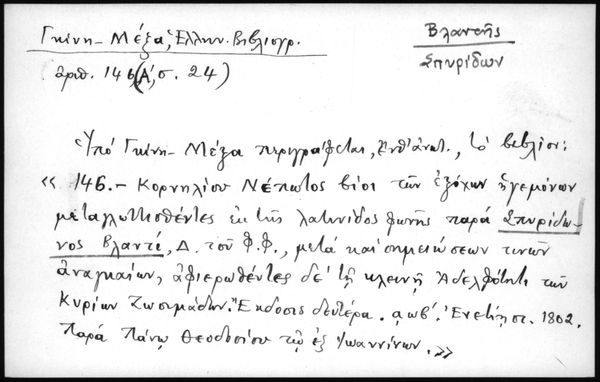 Γκίνη - Μέξα, Ἑλλην. Βιβλιογρ.
ἀριθ. 146 (Α', σ. 24)
Βλαντῆς
Σπυρίδων
Ὑπό Γκίνη - Μέξα περιγράφεται, ἔνθ' ἀνωτ., τό βιβλίον:
«146.- Κορνηλίου Νέπωτος βίοι τῶν ἐξόχων ἡγεμόνων
μεταγλωττισθέντες ἐκ τῆς λατινίδος φωνῆς παρά Σπυρίδω-
νος Βλαντῆ, Δ. τοῦ Φ.Φ., μετά καί σημειώσεων τινῶν
ἀναγκαίων, ἀφιερωθέντες δέ τῇ κλεινῇ Ἀδελφότητι τῶν
Κυρίων Ζωσιμάδων. Ἔκδοσις δευτέρα. αωβ'. Ἐνετίῃσι. 1802.
Παρά Πάνῳ Θεοδοσίου τῷ ἐξ Ἰωαννίνων.»